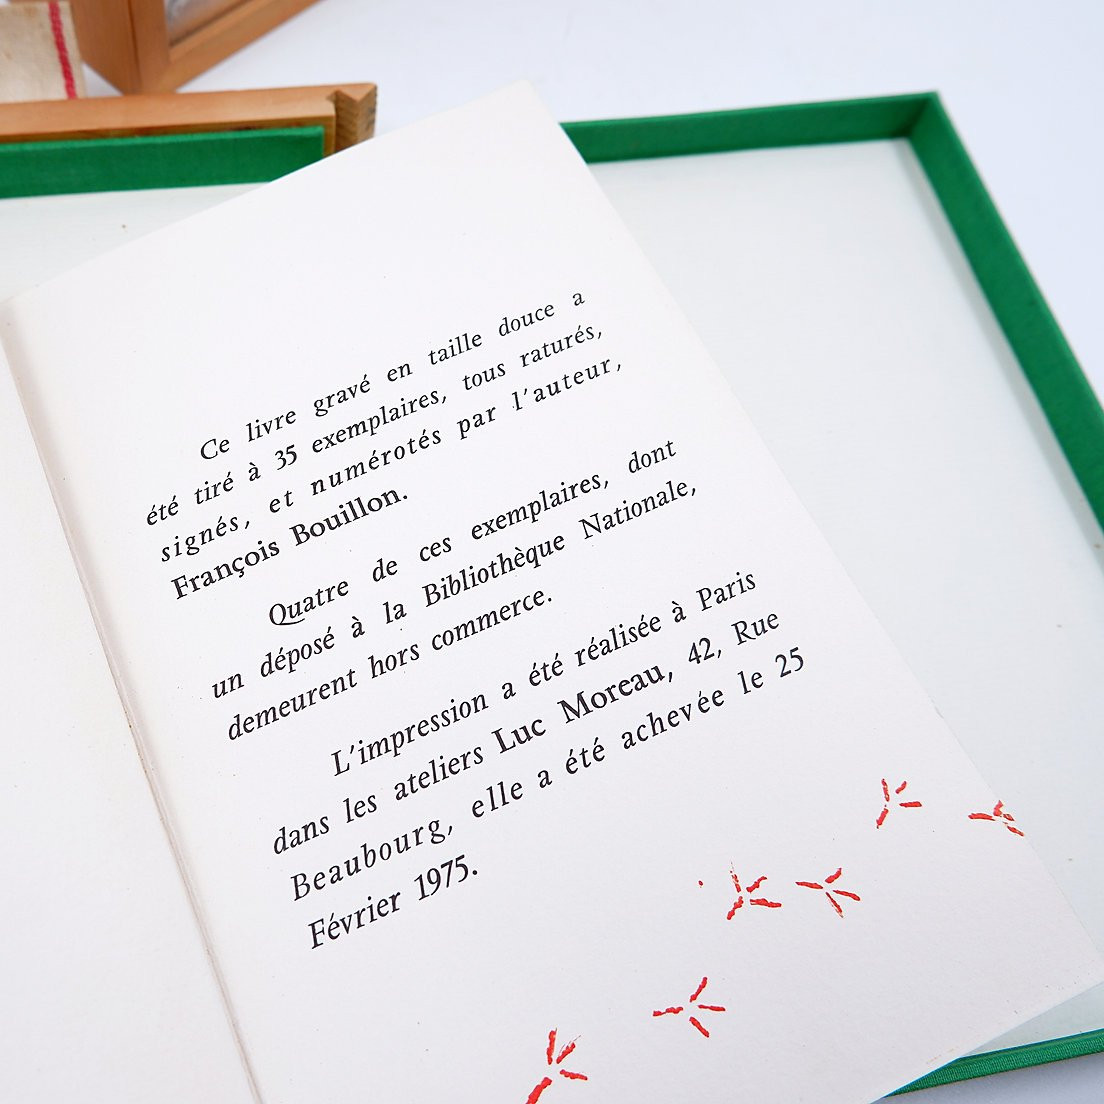 Ce livre gravé en taille douce a
été tiré à 35 exemplaires, tous raturés,
signés, et numérotés par l'auteur,
François Bouillon.
Quatre de ces exemplaires, dont
un déposé à la Bibliothèque Nationale,
demeurent hors commerce.
L'impression a été réalisée à Paris
dans les ateliers Luc Moreau, 42, Rue
Beaubourg, elle a été achevée le 25
Février 1975.